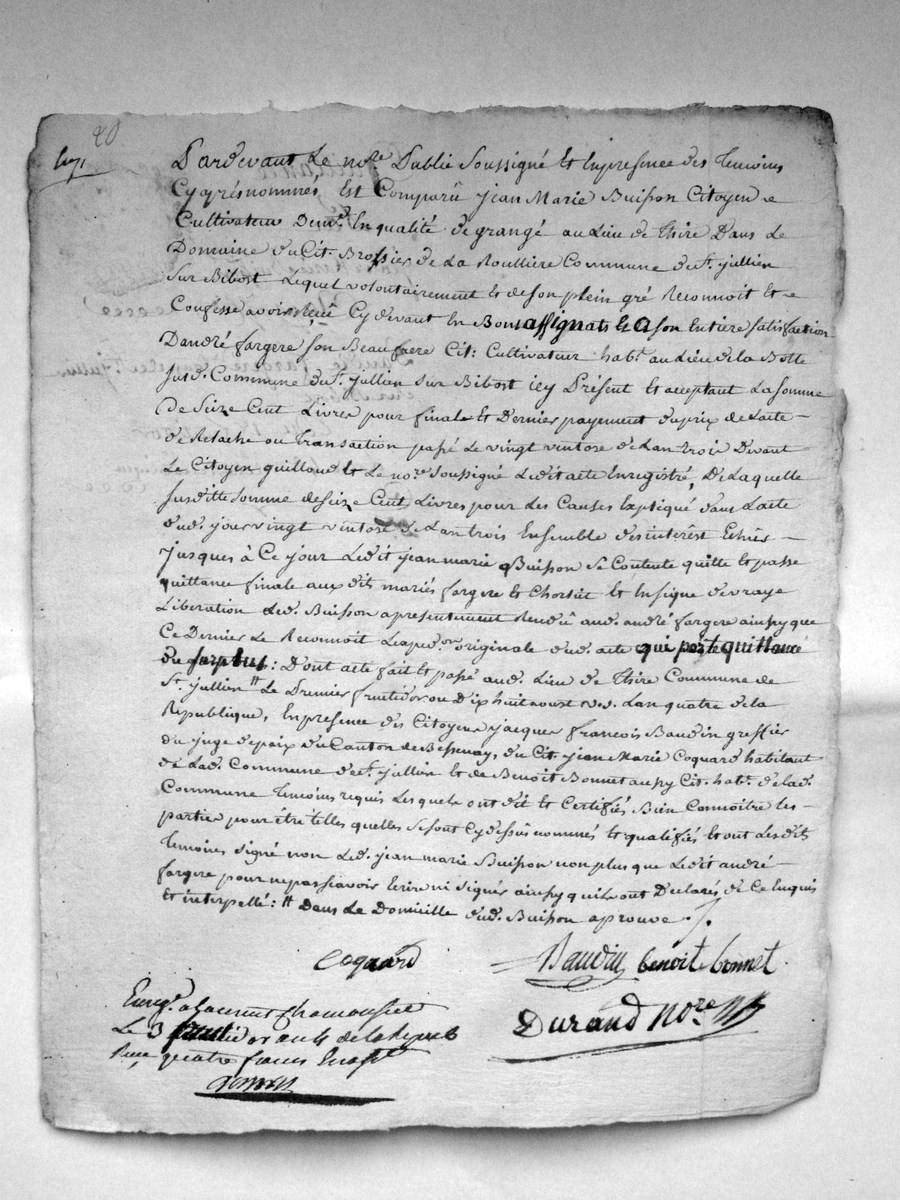 20
Eng.
Pardevant Le no.re Public Soussigné Et Enpresence des Temoins
Cyaprésnommés, Est Comparû jean Marie Buisson Citoyen e
Cultivateur Dem.t En qualité de grangé au Lieu de Thire Dans Le
Domaine du Cit. Brossier de La Roulliere Commune de S.t jullien
Sur Bibost Lequel volontairement et de son plein gré Reconnoit et e
Confesse avoir Reçû Cy devant En Bons assignats et a son Entiere satisfaction
Dandré fargere son Beau frere Cit: Cultivateur hab.t au Lieu de la Botte
Susd. Commune de S.t jullien sur Bibost icy Présent et acceptant La somme
De Seize Cent Livres pour finale et Dernier payement du prix de L'acte
de Relache ou Transaction passé Le vingt ventose de Lan trois Devant
Le Citoyen guilloud et Le no.re Soussigné Ledit acte Enregistré, De Laquelle
Susditte somme de Seize Cent Livres pour Les Causes Expliqué dans L'acte
dud. jour vingt ventose de Lan trois Ensemble des interest Echus
jusques à Ce jour Ledit jean marie Buisson Se Contente quitte et passe
quittance finale aux dits mariés fargere et Chorsut et En signe de vraye
Liberation Led. Buisson apresentement Rendû aud. andré fargere ainsy que
Ce Dernier Le Reconnoit Lexped.on originale dud. acte qui porte quittance
du surplus: Dont acte fait et passé aud. Lieu de Thire Commune de
S.t jullien # Le Premier fructidor ou Dix huit aoust v.s. Lan quatre de la
Republique, En presence des Citoyens jacques francois Baudin greffier
du juge de paix du Canton de Bessenay, du Cit. jean Marie Coquard habitant
de Lad. Commune de S.t jullien et de Benoit Bonnet aussy Cit. hab.t de lad.
Commune Temoins requis Lesquels ont dit et Certifiés Bien Connoitre les
partie pour être telles quelles se sont Cy dessus nommés et qualifiés et ont Lesdits
Temoins signé non Led. jean marie Buisson non plus que Ledit andré
fargere pour ne pas savoir Ecrire ni signer ainsy quils ont Declarés de Ce Enquis
Et interpellé: # Dans Le Domicille dud. Buisson aprouvé
Coquard Baudin benoit bonnet
Durand No.re
Enreg.é a Laurent Chamousset
Le 3 fructidor an 4 de la Repub
Reçu quatre francs